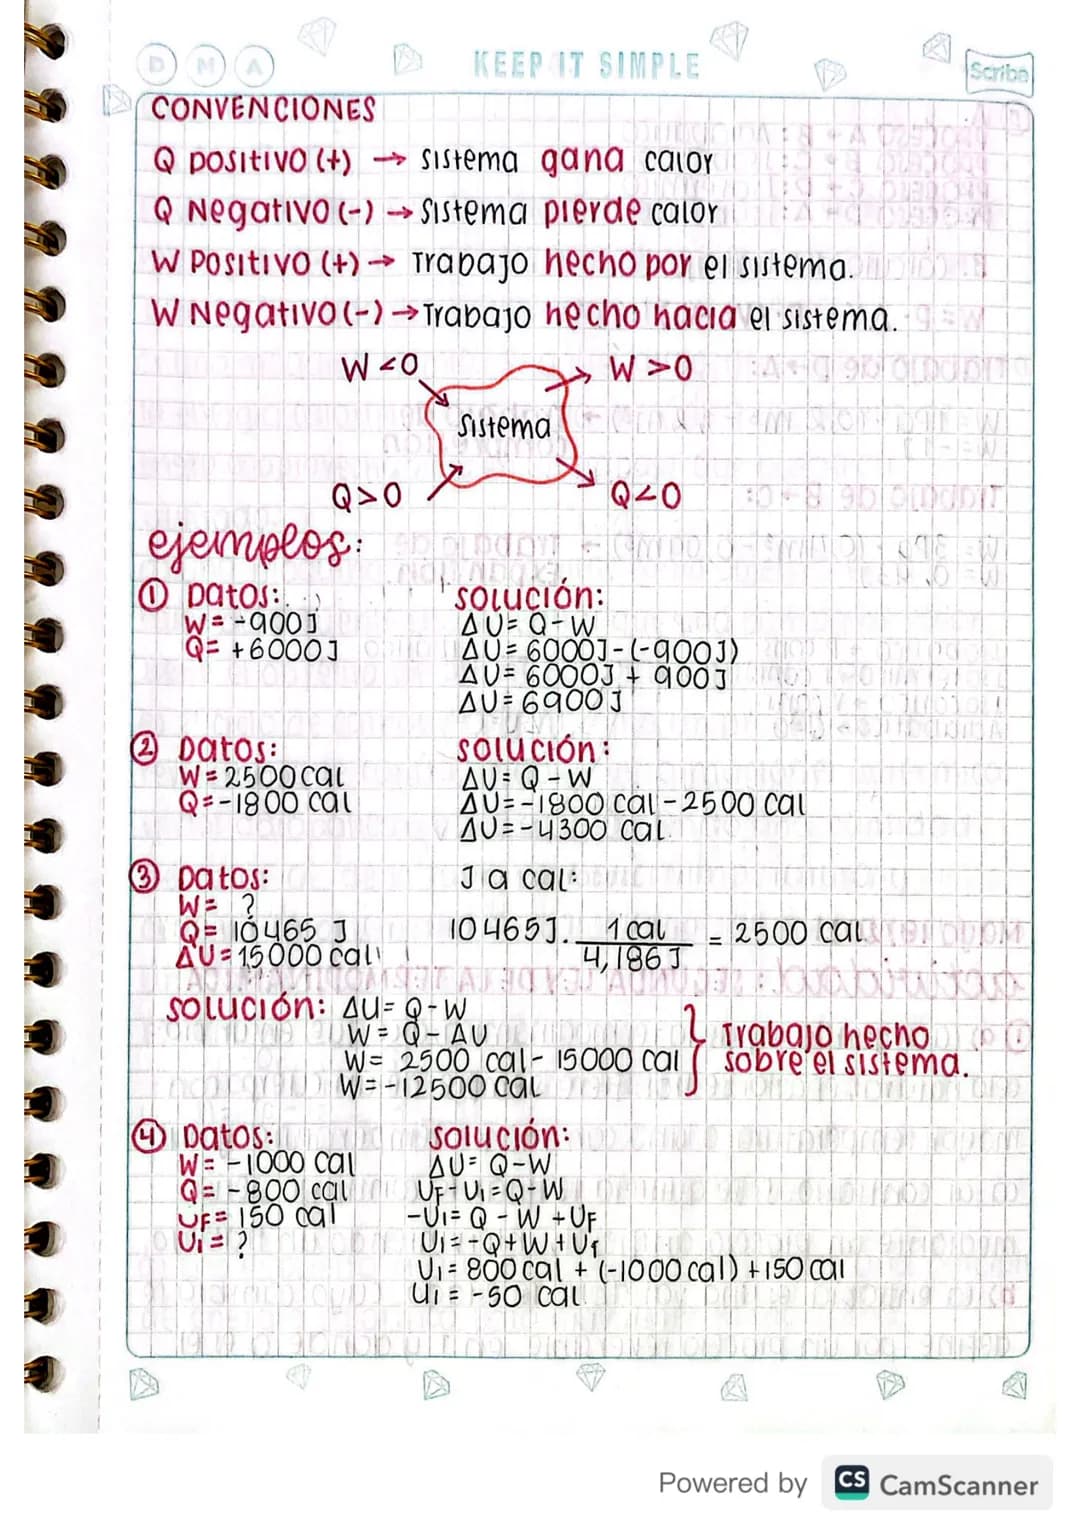 D M A
KEEP IT SIMPLE
Scribe
CONVENCIONES
Q positivo (+) → sistema gana calor
Q Negativo (-) → sistema pierde calor
W Positivo (+) → Trabajo hecho por el sistema.
W Negativo (-) → Trabajo hecho hacia el sistema.
W <0
W >0
Sistema
Q>0
Q<0
ejemplos:
① Datos:
W= -900J
Q= +6000J
Solución:
ΔU= Q-W
ΔU= 6000J-(-900J)
ΔU= 6000J + 900J
ΔU= 6900J
② Datos:
W= 2500 cal
Q= -1800 cal
Solución:
ΔU= Q - W
ΔU= -1800 cal - 2500 cal
ΔU= -4300 cal
③ Datos:
W= ?
Q= 10465 J
ΔU= 15000 cal
J a cal:
10465J. 1 cal = 2500 cal
4,186J
Solución: ΔU= Q-W
W= Q- ΔU
W= 2500 cal- 15000 cal
W= -12500 cal
Trabajo hecho
sobre el sistema.
④ Datos:
W= -1000 cal
Q= -800 cal
UF= 150 cal
Ui= ?
Solución:
ΔU= Q-W
UF-Ui=Q-W
-Ui= Q - W +UF
Ui= -Q+W+Uf
Ui= 800 cal + (-1000 cal) +150 cal
Ui = -50 cal
Powered by CS CamScanner